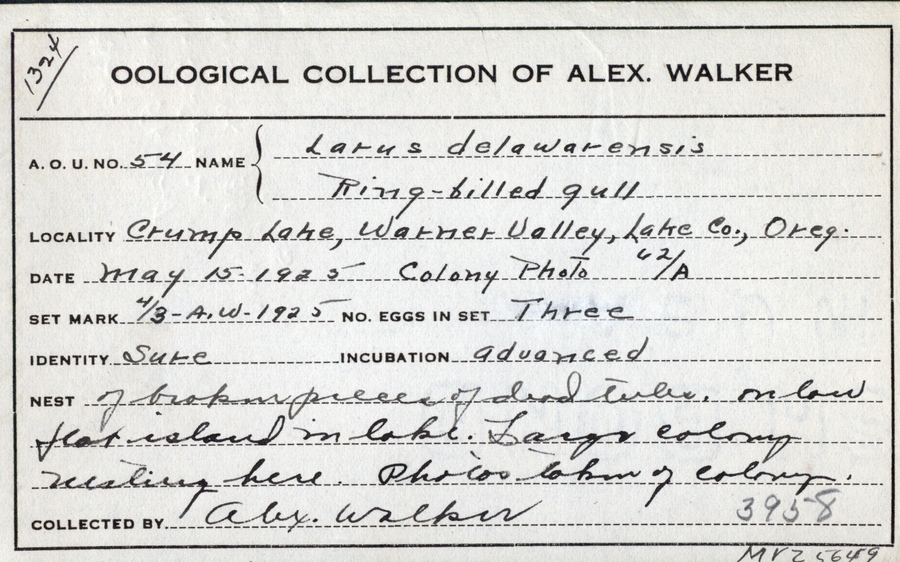 1324
OOLOGICAL COLLECTION OF ALEX. WALKER
A. O. U. NO. 54 NAME Larus delawarensis
Ring-billed gull
LOCALITY Crump Lake, Warner Valley, Lake Co., Oreg.
DATE May 15-1925 Colony Photo 62/A
SET MARK 4/3-A.W-1925 NO. EGGS IN SET Three
IDENTITY Sure INCUBATION advanced
NEST of broken pieces of dead tules. on low
flat island in lake. Large colony
nesting here. Photos taken of colony.
COLLECTED BY Alex. Walker 3958
MVZ 5649